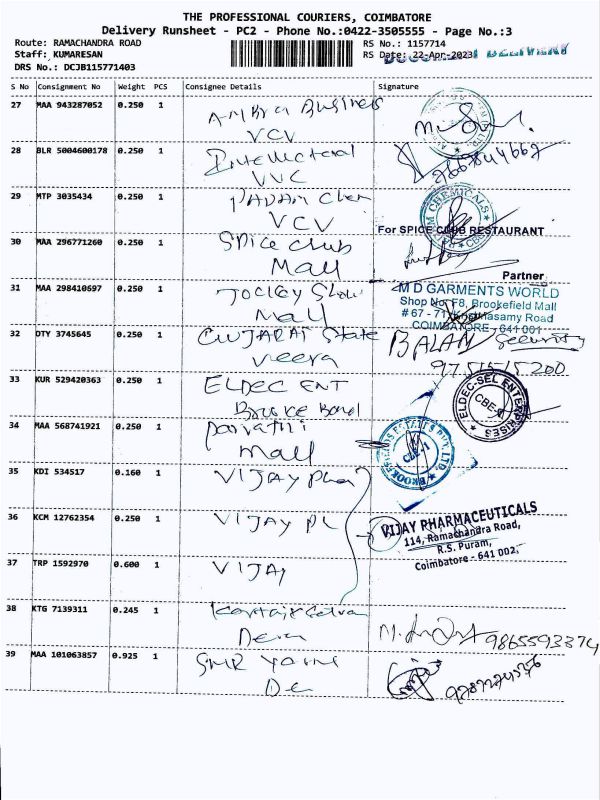 THE PROFESSIONAL COURIERS, COIMBATORE
Delivery Runsheet - PC2 - Phone No.:0422-3505555 - Page No.:3
Route: RAMACHANDRA ROAD RS No.: 1157714
Staff: KUMARESAN RS Date: 22-Apr-2023 DELIVERY
DRS No.: DCJB115771403
S No Consignment No Weight PCS Consignee Details Signature
27 MAA 943287052 0.250 1 Business
VCV
28 BLR 5004600178 0.250 1
VVC
29 MTP 3035434 0.250 1 PADAM Chem
VCV
M CHEMICALS
For SPICE CLUB RESTAURANT
30 MAA 296771260 0.250 1 Spice club
Mall
Partner
31 MAA 298410697 0.250 1 Jockey
Mall
M D GARMENTS WORLD
Shop No F8, Brookefield Mall
# 67 - 71 Krishnasamy Road
COIMBATORE - 641 001
32 DTY 3745645 0.250 1 GUJARAT State
Veera
BALAN Security
9751515200
33 KUR 529420363 0.250 1 ELDEC ENT
Brooke Bond
ELDEC-SEL ENTERPRISES
CBE-
34 MAA 568741921 0.250 1 Parvathi
Mall
BROOKEFIELDS ESTATES PVT. LTD.
CBE-1
35 KDI 534517 0.160 1 VIJAY Pha
36 KCM 12762354 0.250 1 VIJAY
VIJAY PHARMACEUTICALS
114, Ramachandra Road,
R.S. Puram,
Coimbatore - 641 002.
37 TRP 1592970 0.600 1 VIJAY
38 KTG 7139311 0.245 1
9865593374
39 MAA 101063857 0.925 1 SMR